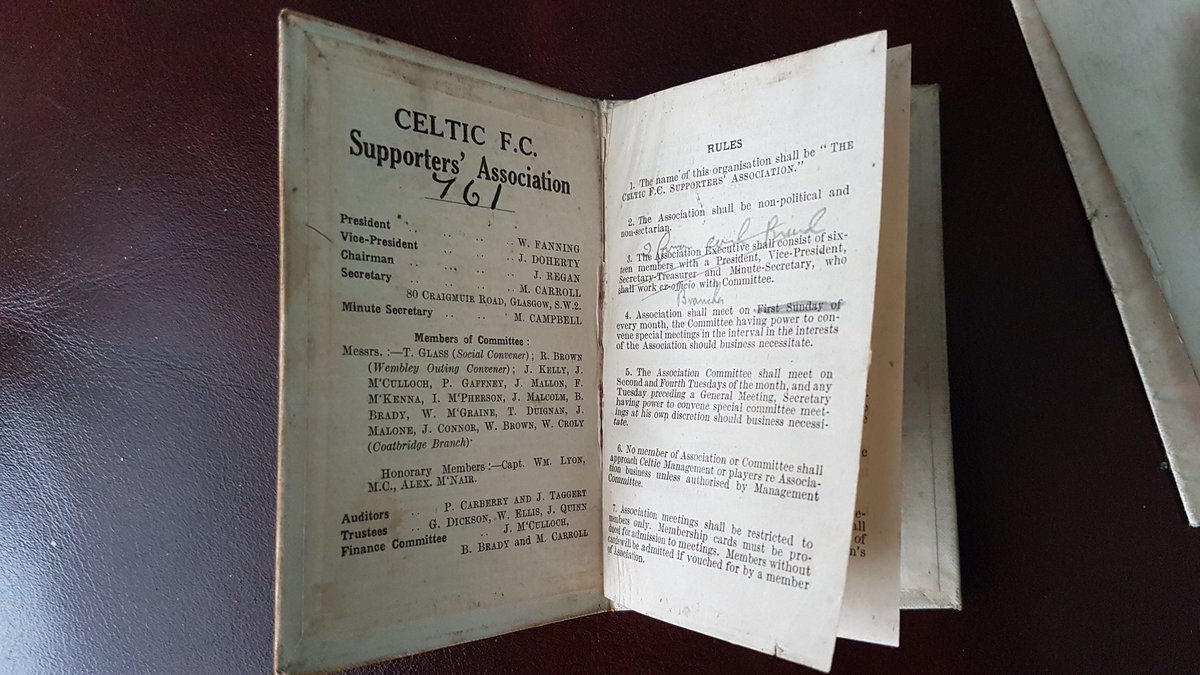 CELTIC F.C.
Supporters' Association
761
President .. .. .. .. W. FANNING
Vice-President .. .. .. J. DOHERTY
Chairman .. .. .. .. J. REGAN
Secretary .. .. .. .. M. CARROLL
80 CRAIGMUIR ROAD, GLASGOW, S.W.2.
Minute Secretary .. .. .. M. CAMPBELL
Members of Committee :
Messrs. :—T. GLASS (Social Convener) ; R. BROWN
(Wembley Outing Convener) ; J. KELLY, J.
M'CULLOCH, P. GAFFNEY, J. MALLON, F.
M'KENNA, I. M'PHERSON, J. MALCOLM, B.
BRADY, W. M'GRAINE, T. DUIGNAN, J.
MALONE, J. CONNOR, W. BROWN, W. CROLY
(Coatbridge Branch)·
Honorary Members :—Capt. WM. LYON,
M.C., ALEX. M'NAIR.
Auditors .. P. CARBERRY AND J. TAGGERT
Trustees .. G. DICKSON, W. ELLIS, J. QUINN
Finance Committee .. J. M'CULLOCH,
B. BRADY and M. CARROLL
RULES
1. The name of this organisation shall be " THE
CELTIC F.C. SUPPORTERS' ASSOCIATION."
2. The Association shall be non-political and
non-sectarian.
3. The Association Executive shall consist of six-
teen members with a President, Vice-President,
Secretary-Treasurer and Minute-Secretary, who
shall work ex-officio with Committee.
Branches
4. Association shall meet on First Sunday of
every month, the Committee having power to con-
vene special meetings in the interval in the interests
of the Association should business necessitate.
5. The Association Committee shall meet on
Second and Fourth Tuesdays of the month, and any
Tuesday preceding a General Meeting, Secretary
having power to convene special committee meet-
ings at his own discretion should business necessi-
tate.
6. No member of Association or Committee shall
approach Celtic Management or players re Associa-
tion business unless authorised by Management
Committee.
7. Association meetings shall be restricted to
members only. Membership cards must be pro-
duced for admission to meetings. Members without
cards will be admitted if vouched for by a member
of Association.
e-
all
of
n's